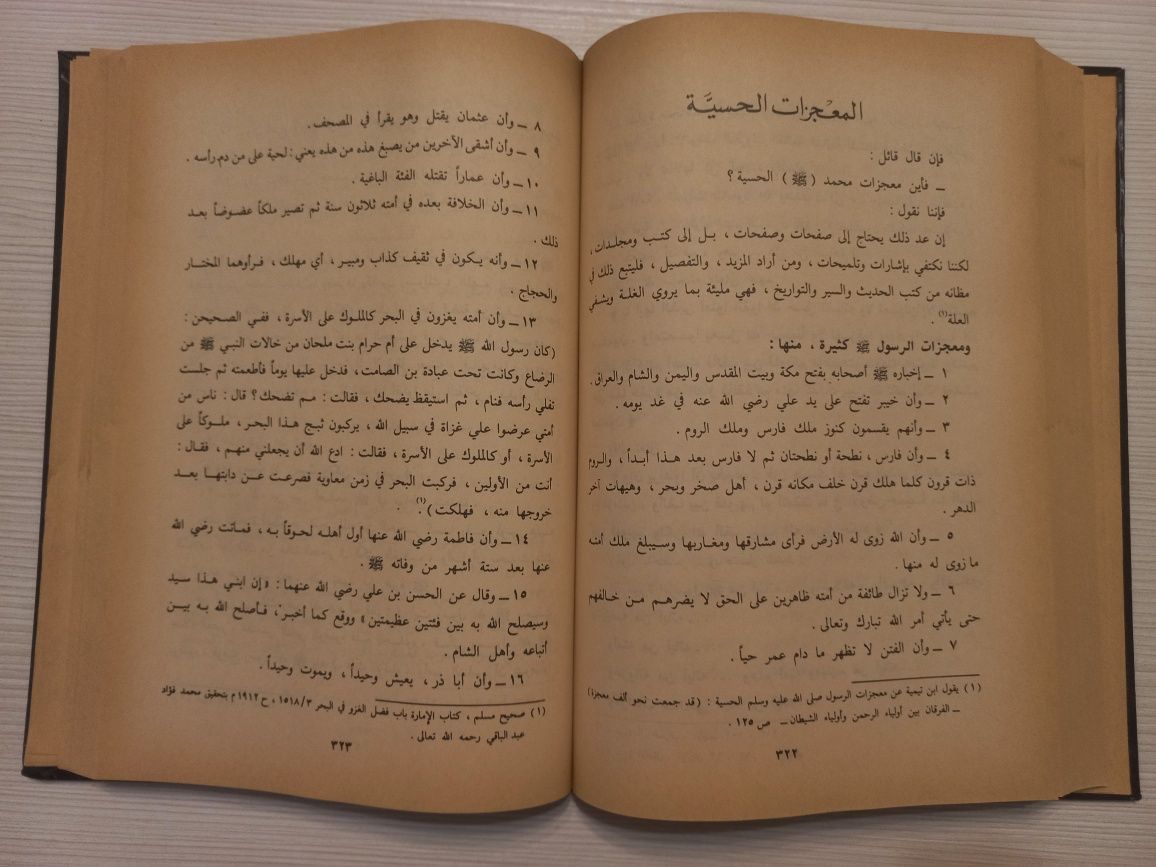 المعجزات الحسيَّة
فإن قال قائل :
ــ فأين معجزات محمد ( ﷺ ) الحسية ؟
فإننا نقول :
إن عد ذلك يحتاج إلى صفحات وصفحات ، بل إلى كتب ومجلدات ،
لكننا نكتفي بإشارات وتلميحات ، ومن أراد المزيد ، والتفصيل ، فليتبع ذلك في
مظانه من كتب الحديث والسير والتواريخ ، فهي مليئة بما يروي الغلة ويشفي
العلة(١) .
ومعجزات الرسول ﷺ كثيرة ، منها :
١ ــ إخباره ﷺ أصحابه بفتح مكة وبيت المقدس واليمن والشام والعراق.
٢ ــ وأن خيبر تفتح على يد علي رضي الله عنه في غد يومه .
٣ ــ وأنهم يقسمون كنوز ملك فارس وملك الروم .
٤ ــ وأن فارس ، نطحة أو نطحتان ثم لا فارس بعد هذا أبداً ، والروم
ذات قرون كلما هلك قرن خلف مكانه قرن ، أهل صخر وبحر ، وهيهات آخر
الدهر .
٥ ــ وأن الله زوى له الأرض فرأى مشارقها ومغاربها وسيبلغ ملك أمته
ما زوى له منها .
٦ ــ ولا تزال طائفة من أمته ظاهرين على الحق لا يضرهم من خالفهم
حتى يأتي أمر الله تبارك وتعالى .
٧ ــ وأن الفتن لا تظهر ما دام عمر حياً .
(١) يقول ابن تيمية عن معجزات الرسول صلى الله عليه وسلم الحسية : (قد جمعت نحو ألف معجزة)
ــ الفرقان بين أولياء الرحمن وأولياء الشيطان ــ ص ١٢٥ .
٣٢٢
٨ ــ وأن عثمان يقتل وهو يقرأ في المصحف .
٩ ــ وأن أشقى الآخرين من يصبغ هذه من هذه يعني : لحية على من دم رأسه .
١٠ ــ وأن عماراً تقتله الفئة الباغية .
١١ ــ وأن الخلافة بعده في أمته ثلاثون سنة ثم تصير ملكاً عضوضاً بعد
ذلك .
١٢ ــ وأنه يكون في ثقيف كذاب ومبير ، أي مهلك ، فرأوهما المختار
والحجاج .
١٣ ــ وأن أمته يغزون في البحر كالملوك على الأسرة ، ففي الصحيحن :
(كان رسول الله ﷺ يدخل على أم حرام بنت ملحان من خالات النبي ﷺ من
الرضاع وكانت تحت عبادة بن الصامت ، فدخل عليها يوماً فأطعمته ثم جلست
تفلي رأسه فنام ، ثم استيقظ يضحك ، فقالت : مم تضحك ؟ قال : ناس من
أمتي عرضوا علي غزاة في سبيل الله ، يركبون ثبج هذا البحر ، ملوكاً على
الأسرة ، أو كالملوك على الأسرة ، فقالت : ادع الله أن يجعلني منهم ، فقال :
أنت من الأولين ، فركبت البحر في زمن معاوية فصرعت عن دابتها بعد
خروجها منه ، فهلكت)(١).
١٤ ــ وأن فاطمة رضي الله عنها أول أهله لحوقاً به ، فماتت رضي الله
عنها بعد ستة أشهر من وفاته ﷺ .
١٥ ــ وقال عن الحسن بن علي رضي الله عنهما : «إن ابني هذا سيد
وسيصلح الله به بين فئتين عظيمتين» ووقع كما أخبر ، فأصلح الله به بين
أتباعه وأهل الشام .
١٦ ــ وأن أبا ذر ، يعيش وحيداً ، ويموت وحيداً .
(١) صحيح مسلم ، كتاب الإمارة باب فضل الغزو في البحر ١٥١٨/٣ ، ح ١٩١٢ م بتحقيق محمد فؤاد
عبد الباقي رحمه الله تعالى .
٣٢٣